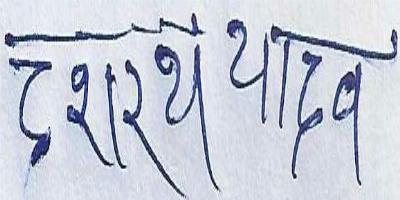 दशरथ यादव